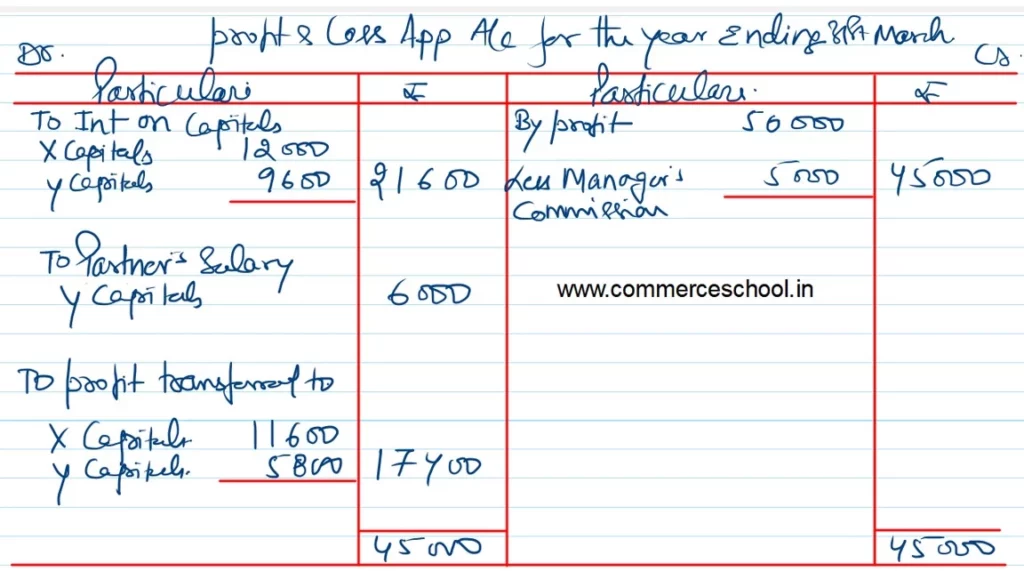 Profit & Loss App A/c for the year Ending 31st March
Dr. Cr.
Particulars ₹ Particulars. ₹
To Int on Capitals By profit 50000
X Capitals 12000
Y Capitals 9600 21600 Less Manager's 5000 45000
Commission
To Partner's Salary
Y Capitals 6000 www.commerceschool.in
To profit transferred to
X Capitals 11600
Y Capitals. 5800 17400
45000 45000